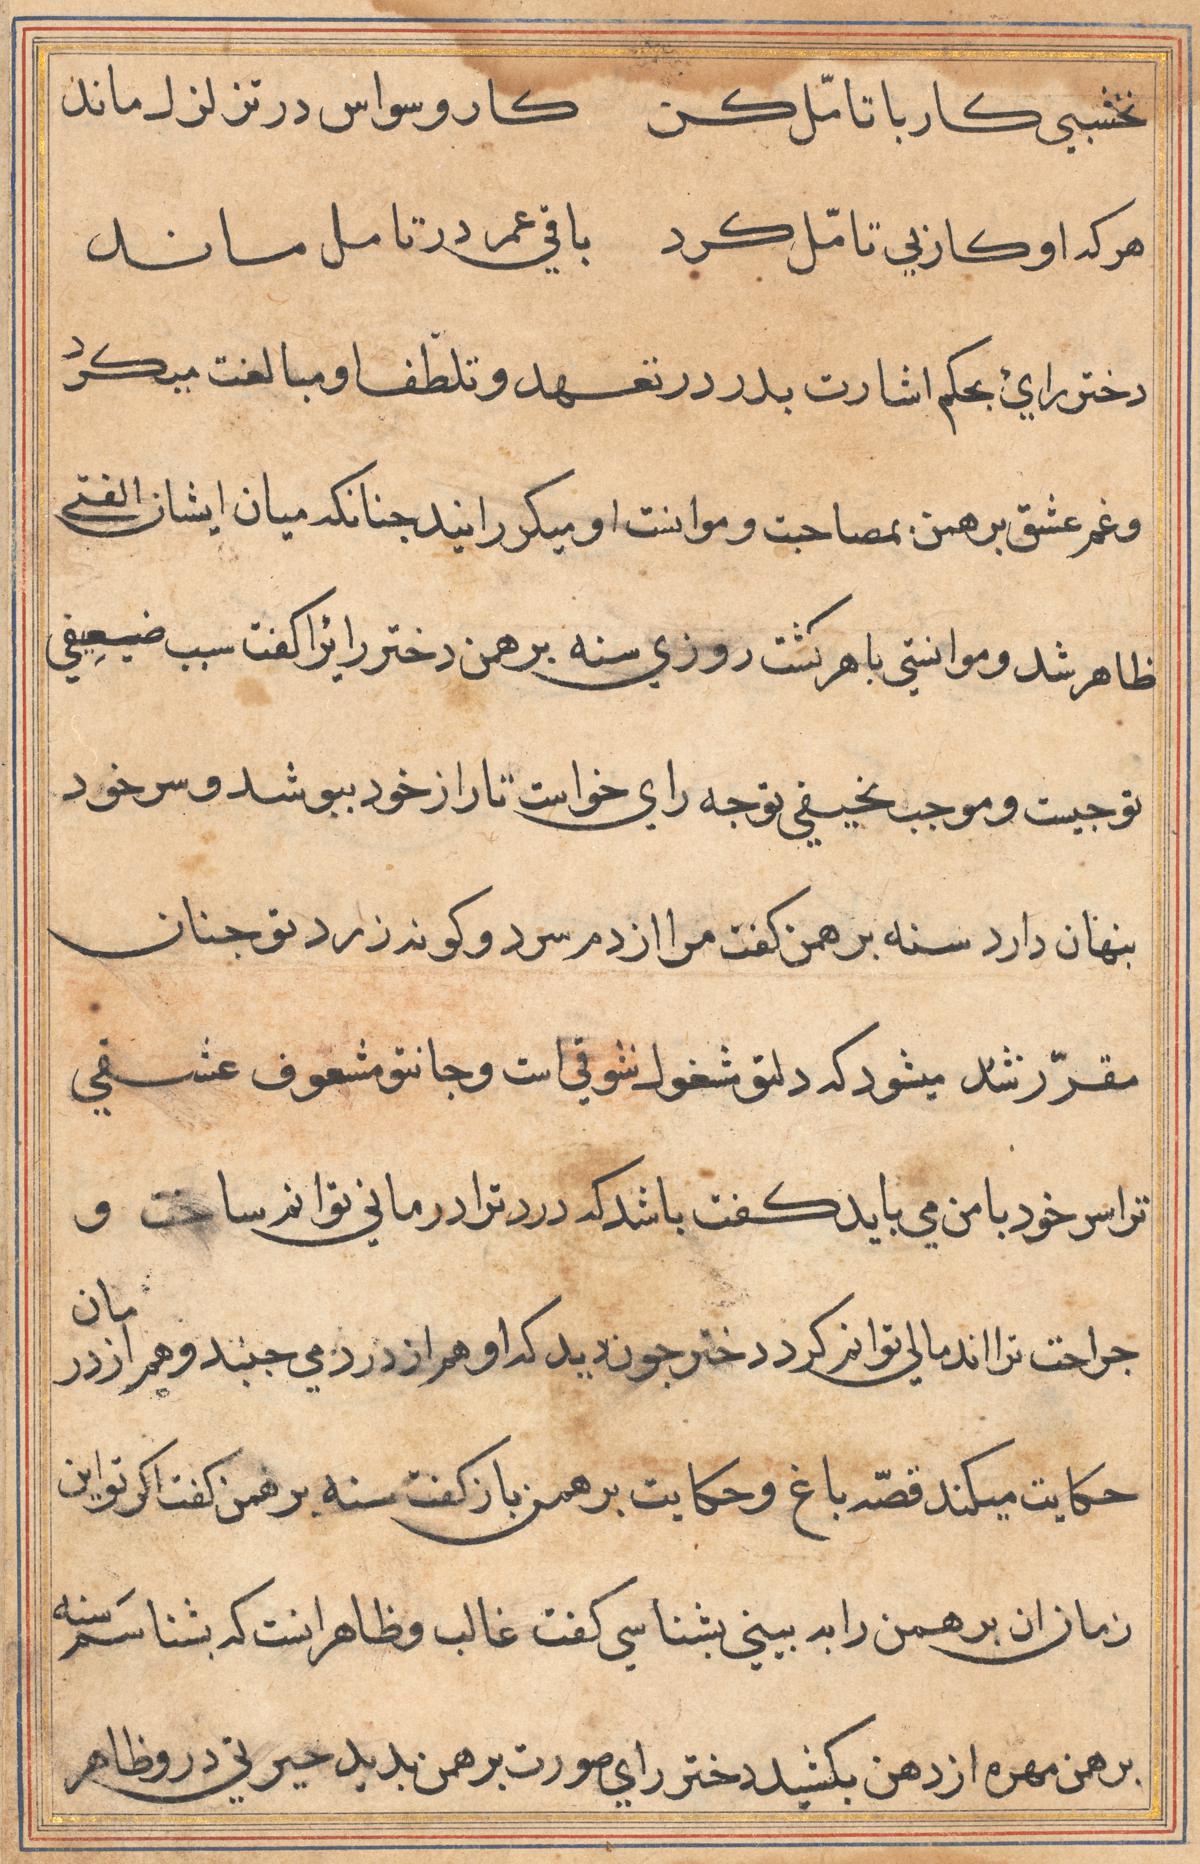 نخشبي كار با تامّل كن كار وسواس در تزلزل ماند
هركه او كار بي تامّل كرد باقي عمر در تامل ماند
دختر راي بحكم اشارت بدر در تعهد و تلطّف او مبالغت ميكرد
و غم عشق برهمن بمصاحبت و موانست او ميكزرانيد جنانكه ميان ايشان الفتي
ظاهر شد و موانستي باهر كشت روزي سنه برهمن دختر رايرا كفت سبب ضعيفي
تو جيست و موجب نحيفي تو جه راي خواست تا راز خود ببوشد و سر خود
بنهان دارد سنه برهمن كفت مرا از دم سرد و كونه زرد تو جنان
مقرّر شد ميشود كه دلتو مشغول شوقي است و جانتو مشعوف عشقي
ترا سر خود با من مي بايد كفت باشد كه درد ترا درماني توانم ساخت و
جراحت ترا اندمالي توانم كرد دختر جون ديد كه او هم از درد مي جنبد و هم از درمان
حكايت ميكند قصّه باغ و حكايت برهمن باز كفت سنه برهمن كفت اكر تو اين
زمان ان برهمن را به بيني بشناسي كفت غالب و ظاهر انست كه بشناسم سنه
برهمن مهره از دهن بكشيد دختر راي صورت برهمن بديد حيرتي در و ظاهر